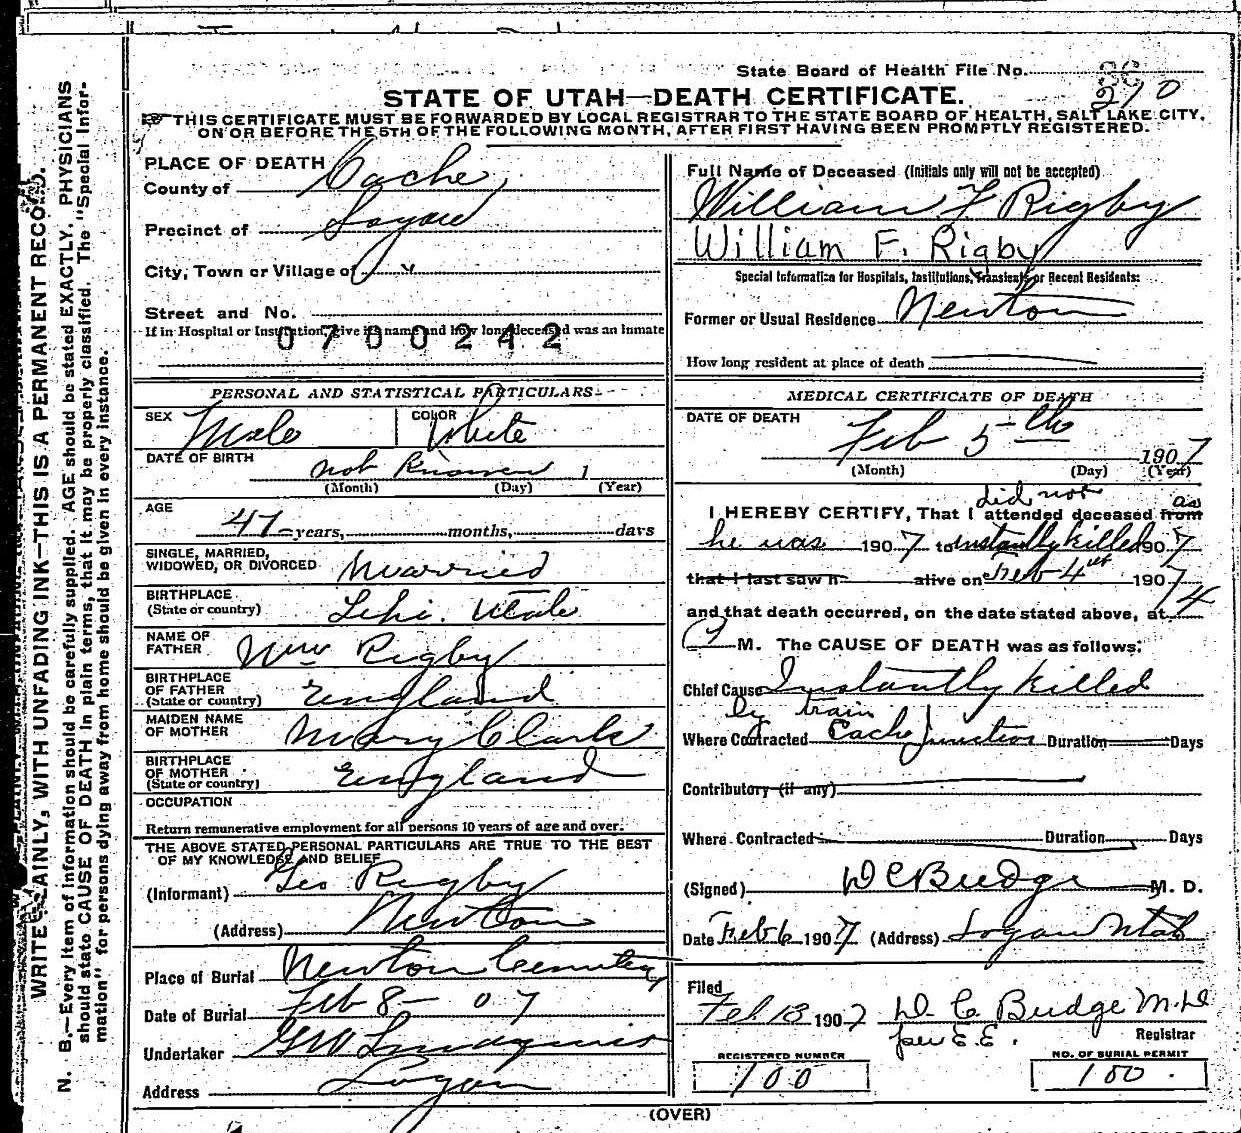 State Board of Health File No. 270
STATE OF UTAH—DEATH CERTIFICATE.
THIS CERTIFICATE MUST BE FORWARDED BY LOCAL REGISTRAR TO THE STATE BOARD OF HEALTH, SALT LAKE CITY,
ON OR BEFORE THE 5TH OF THE FOLLOWING MONTH, AFTER FIRST HAVING BEEN PROMPTLY REGISTERED.
WRITE PLAINLY, WITH UNFADING INK—THIS IS A PERMANENT RECORD.
N. B.—Every item of information should be carefully supplied. AGE should be stated EXACTLY. PHYSICIANS
should state CAUSE OF DEATH in plain terms, that it may be properly classified. The "Special Infor-
mation" for persons dying away from home should be given in every instance.
PLACE OF DEATH
County of Cache
Precinct of Logan
City, Town or Village of
Street and No.
If in Hospital or Institution, give its name and how long deceased was an inmate
0700242
PERSONAL AND STATISTICAL PARTICULARS
SEX Male COLOR White
DATE OF BIRTH not Known 1
(Month) (Day) (Year)
AGE
47 years, months, days
SINGLE, MARRIED,
WIDOWED, OR DIVORCED Married
BIRTHPLACE
(State or country) Lehi. Utah
NAME OF
FATHER Wm Rigby
BIRTHPLACE
OF FATHER
(State or country) England
MAIDEN NAME
OF MOTHER Mary Clark
BIRTHPLACE
OF MOTHER
(State or country) England
OCCUPATION
Return remunerative employment for all persons 10 years of age and over.
THE ABOVE STATED PERSONAL PARTICULARS ARE TRUE TO THE BEST
OF MY KNOWLEDGE AND BELIEF
(Informant) Geo Rigby
(Address) Newton
Place of Burial Newton Cemetery
Date of Burial Feb 8 - 07
Undertaker GW Lindquist
Address Logan
Full Name of Deceased (Initials only will not be accepted)
William F Rigby
William F. Rigby
Special Information for Hospitals, Institutions, Transients or Recent Residents:
Former or Usual Residence Newton
How long resident at place of death
MEDICAL CERTIFICATE OF DEATH
DATE OF DEATH
Feb 5th 1907
(Month) (Day) (Year)
I HEREBY CERTIFY, That I did not attended deceased from as
he was 1907 to instantly killed 1907
that I last saw h alive on Feb 4th 1907
and that death occurred, on the date stated above, at 4
P M. The CAUSE OF DEATH was as follows:
Chief Cause Instantly killed
by train
Where Contracted Cache Junction Duration Days
Contributory (if any)
Where Contracted Duration Days
(Signed) D C Budge M. D.
Date Feb 6 1907 (Address) Logan Utah
Filed
Feb 13 1907 D. C. Budge M.D
per E.E. Registrar
REGISTERED NUMBER
100
NO. OF BURIAL PERMIT
100.
(OVER)